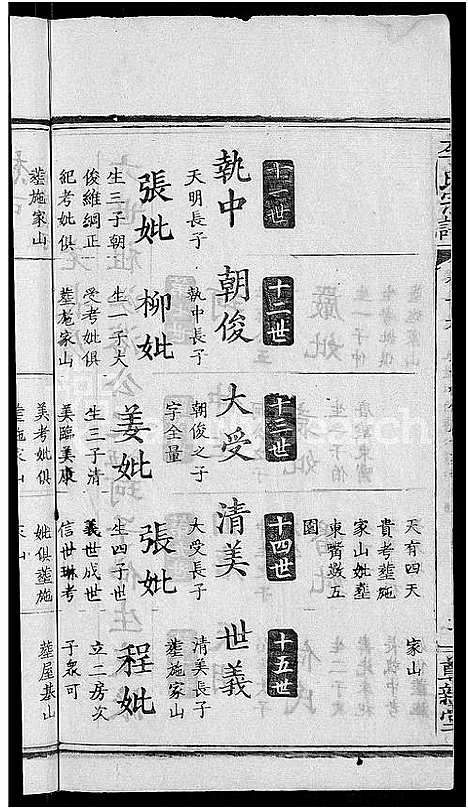 天有四天
貴考塟施
家山妣塟
東嘴数五
園
家山
十一世
執中
天明長子
張妣
生三子朝
俊維綱正
紀考妣俱
塟施家山
十二世
朝俊
執中長子
柳妣
生一子大
受考妣俱
塟施家山
十三世
大受
朝俊之子
字全量
姜妣
生三子清
美臨美康
美考妣俱
塟施家山
十四世
清美
大受長子
張妣
生四子世
義世成世
信世琳考
妣俱塟施
家山
十五世
世義
清美長子
塟施家山
程妣
立二房次
子衆可
塟屋基山